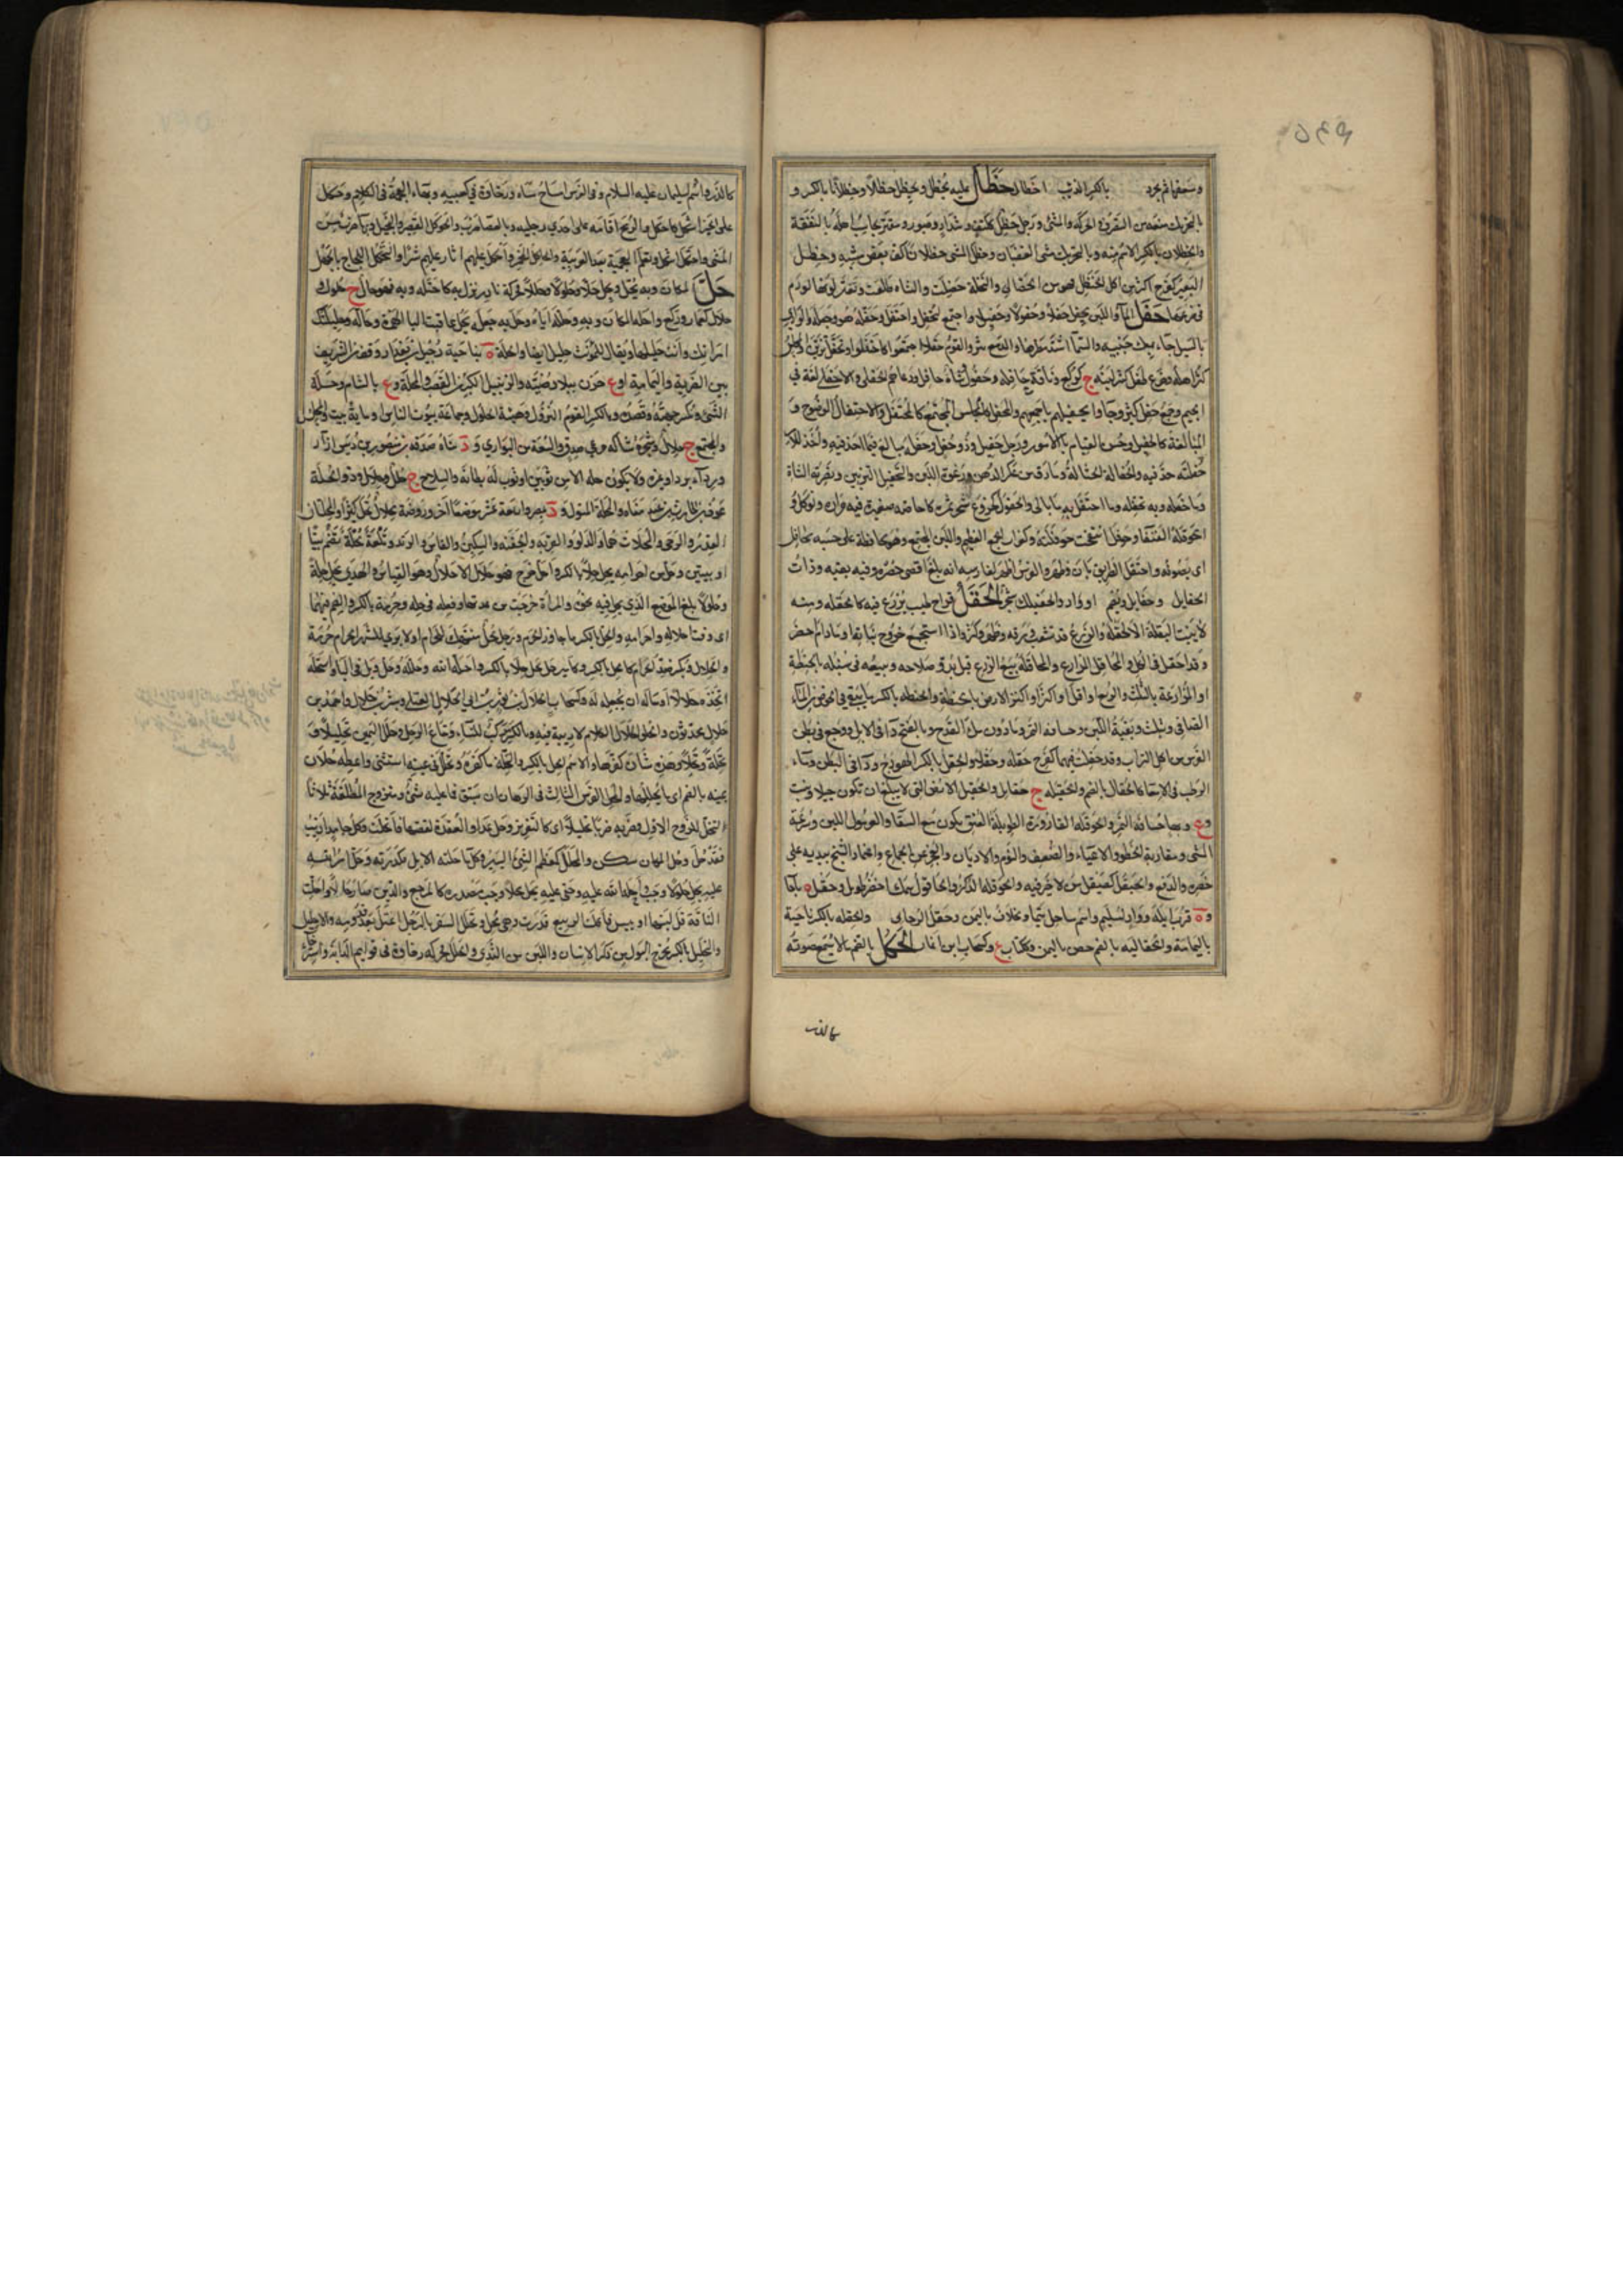 حَظَلَ عليه يَحْظُلُ ويَحْظِلُ حظلاً وحِظْلاناً بالكسر و
بالتحريك منعه من التصرف والحركة والمشي ورجل حَظِلٌ ككتف وشداد وصبور ومقتر يحاسب اهله بالنفقة
والحظلان بالكسر الاسم منه وبالتحريك مشى الغضبان وحظل المشي حظلانا كف بعض مشيه وحظل
البعير كفرح اكثر من اكل الحنظل فهو من الحظالى والنخلة والشاة ظلعت وتغير لونها لورم
في ضرعها حَفَلَ الماء واللبن يحفل حفلاً وحفولاً وحفيلاً اجتمع كتحفل واحتفل وحفله هو وحفله والوادي
بالسيل جاء بملء جنبيه والسماء اشتد مطرها والدمع نثر والقوم حفلا اجتمعوا كاحتفلوا وتحفل تزين والمجلس
كثر اهله وضرع حافل كثير لبنه ج كركع وناقة حافلة وحفول وشاة حافل ودعاهم الحفلى والاحفلى لغة في
الجيم وجمع حفل كثير وجاؤا بحفيلتهم باجمعهم والمحفل كالمجلس المجتمع كالمحتفل والاحتفال الوضوح و
المبالغة كالحفيل وحسن القيام بالامور ورجل حفيل وذو حفل وحفلة مبالغ فيما اخذ فيه واخذ للامر
حفلته جد فيه والحفالة الحثالة وما رق من عكر الدهن ورغوة اللبن والتحفيل التزيين وتصرية الشاة
وما حفله وبه يحفله وما احتفل به ما بالى والحفول كخروع شجر ثمره كاجاصة صغيرة فيه مرارة ويؤكل و
الحوفلة القنفاء وحوفل انتفخت حوفلته وكغراب الجمع العظيم واللبن المجتمع وهو محافظ على حسبه محافل
اى يصونه واحتفل الطريق بان وظهر والفرس اظهر لفارسه انه بلغ اقصى حضره وفيه بقية وذات
الحفايل وحفايل ويضم او واد والحفيلل شجر الحَقْلُ قراح طيب يزرع فيه كالحقلة ومنه
لا ينبت البقلة الا الحقلة والزرع قد تشعب ورقه وظهر وكثر او اذا استجمع خروج نباته او ما دام اخضر
وقد احقل في الكل والمحاقل المزارع والمحاقلة بيع الزرع قبل بدو صلاحه او بيعه في سنبله بالحنطة
او المزارعة بالثلث او الربع او اقل او اكثر او اكتراء الارض بالحنطة والحقلة بالكسر ما يبقى في الحوض من الماء
الصافي ويثلث وبقية اللبن وحسافة التمر وما دون ملء القدح وبالفتح داء في الابل ووجع في بطن
الفرس من اكل التراب وقد حقلت فيهما كفرح حقلة وحقلا والحقل بالكسر الهودج وداء في البطن وماء
الرطب في الامعاء كالحقال بالضم والحقيلة ج حقايل والحقيل الارض التي لا يبلغ ان تكون جبلا ونبت
وع وبهاء حسافة التمر والحوقلة القارورة الطويلة العنق تكون مع السقاء والغرمول اللين وسرعة
المشي ومقاربة الخطو والاعياء والضعف والنوم والادبار والعجز عن الجماع واعتماد الشيخ بيديه على
خصره والدفع والحيقل كصيقل من لا خير فيه والحوقلة الذكر والحاقول سمك اخضر طويل وحقل ة باجأ
وة قرب ايلة وواد لسليم واسم ساحل تيماء ومخلاف باليمن وحقل الرخامى والحقلة بالكسر ناحية
باليمامة والحقالية بالضم حصن باليمن وككتاب ع وكسحاب ابن انمار الحُكْلُ بالضم ما لا يسمع صوته
كالذر
كالذر واسم لسليمان عليه السلام وفي الفرس امساح نساه ورخاوة في كعبيه وبهاء العجمة في الكلام وحكل
على الخبر اشكل كاحكل والرمح اقامه على احدى رجليه وبالعصا ضرب والحوكل القصير والبخيل
المشي واحتكل اشكل وتعلم العجمية بعد العربية والحاكل المخمن واحكل عليهم اثار عليهم شرا والتحكل اللجاج بالجهل
حَلَّ المكان وبه يَحُلُّ ويحل حلاً وحلولاً وحللاً محركة نادر نزل به كاحتله وبه فهو حال ج حلول و
حلال كعمار وركع واحله المكان وبه وحلله اياه وحل به جعله يحل عاقبت الباء الهمزة وحاله وحليلتك
امرأتك وانت حليلها ويقال للمؤنث حليل ايضا والحلة ة بناحية دجيل من بغداد وقف من الشريف
بين الضرية واليمامة او ع حزن ببلاد ضبة والزنبيل الكبير من القصب والمحلة وع بالشام وحلة
الشيء ويكسر جهته وقصده وبالكسر القوم النزول وهيئة الحلول وجماعة بيوت الناس او ماية بيت والمجلس
والمجتمع ج حلال وشجرة شاكة مرعى صدق والشقة من البواري ود بناه صدقة بن منصور بن دبيس ازار
ورداء برد او غيره ولا يكون حلة الا من ثوبين او ثوب له بطانة والسلاح ج حلل وحلال وذو الحلة
عوف بن الحارث بن عبد مناة والحلة المنزل ود بمصر واربعة عشر موضعا آخر وروضة محلال تحل كثيرا والمحلتان
القدر والرحى والمحلات هما والدلو والقربة والجفنة والسكين والفاس والزند وتلعة محلة تضم بيتا
او بيتين وحل من احرامه يحل حلا بالكسر واحل خرج فهو حلال لا حال وهو القياس والهدي يحل حلة
وحلولا بلغ الموضع الذي يحل فيه نحره والمرأة خرجت من عدتها وفعله في حله وحرمه بالكسر والضم فيهما
اى وقت احلاله واحرامه والحل بالكسر ما جاوز الحرم ورجل محل منتهك للحرام او لا يرى للشهر الحرام حرمة
والحلال ويكسر ضد الحرام كالحل بالكسر وكامير حل يحل حلا بالكسر واحله الله وحلله وحل وبل في الباء واستحله
اتخذه حلالا او ساله ان يحله له وكسحاب ابو الحلال بن ابي الحلال العتكي وبشر بن حلال واحمد بن
حلال محدثون والحلو الحلال الكلام لا ريبة فيه وبالكسر مركب للنساء ومتاع الرحل وحلل اليمين تحليلا و
تحلة وتحلا وهذه شاذة كفرها والاسم الحل بالكسر والتحلة ما كفر به وتحلل في يمينه استثنى واعطه حلان
يمينه بالضم اى ما يحللها والمحلل الفرس الثالث في الرهان ان سبق فما عليه شيء ومتزوج المطلقة ثلاثا
لتحل للزوج الاول وضربه ضربا تحليلا اى كالتعزير وحل عدا والعقدة نقضها فانحلت وكل جامد اذيب
فقد حل وحل المكان سكن والمحلل كمعظم الشيء اليسير وكل ماء حلته الابل فكدرته وحل امر الله
عليه يحل حلولا وجب واحله الله عليه وحق عليه يحل محلا وجب مصدره كالمرجع والدين صار حالا واحلت
الناقة قل لبنها او يبس فاكلت الربيع فدرت وهي محل وتحلل السفر بالرجل اعتل بعد قدومه والاحليل
والتحليل بالكسر مخرج البول من ذكر الانسان واللبن من الثدي والحلل محركة رخاوة في قوايم الدابة واسترخاء